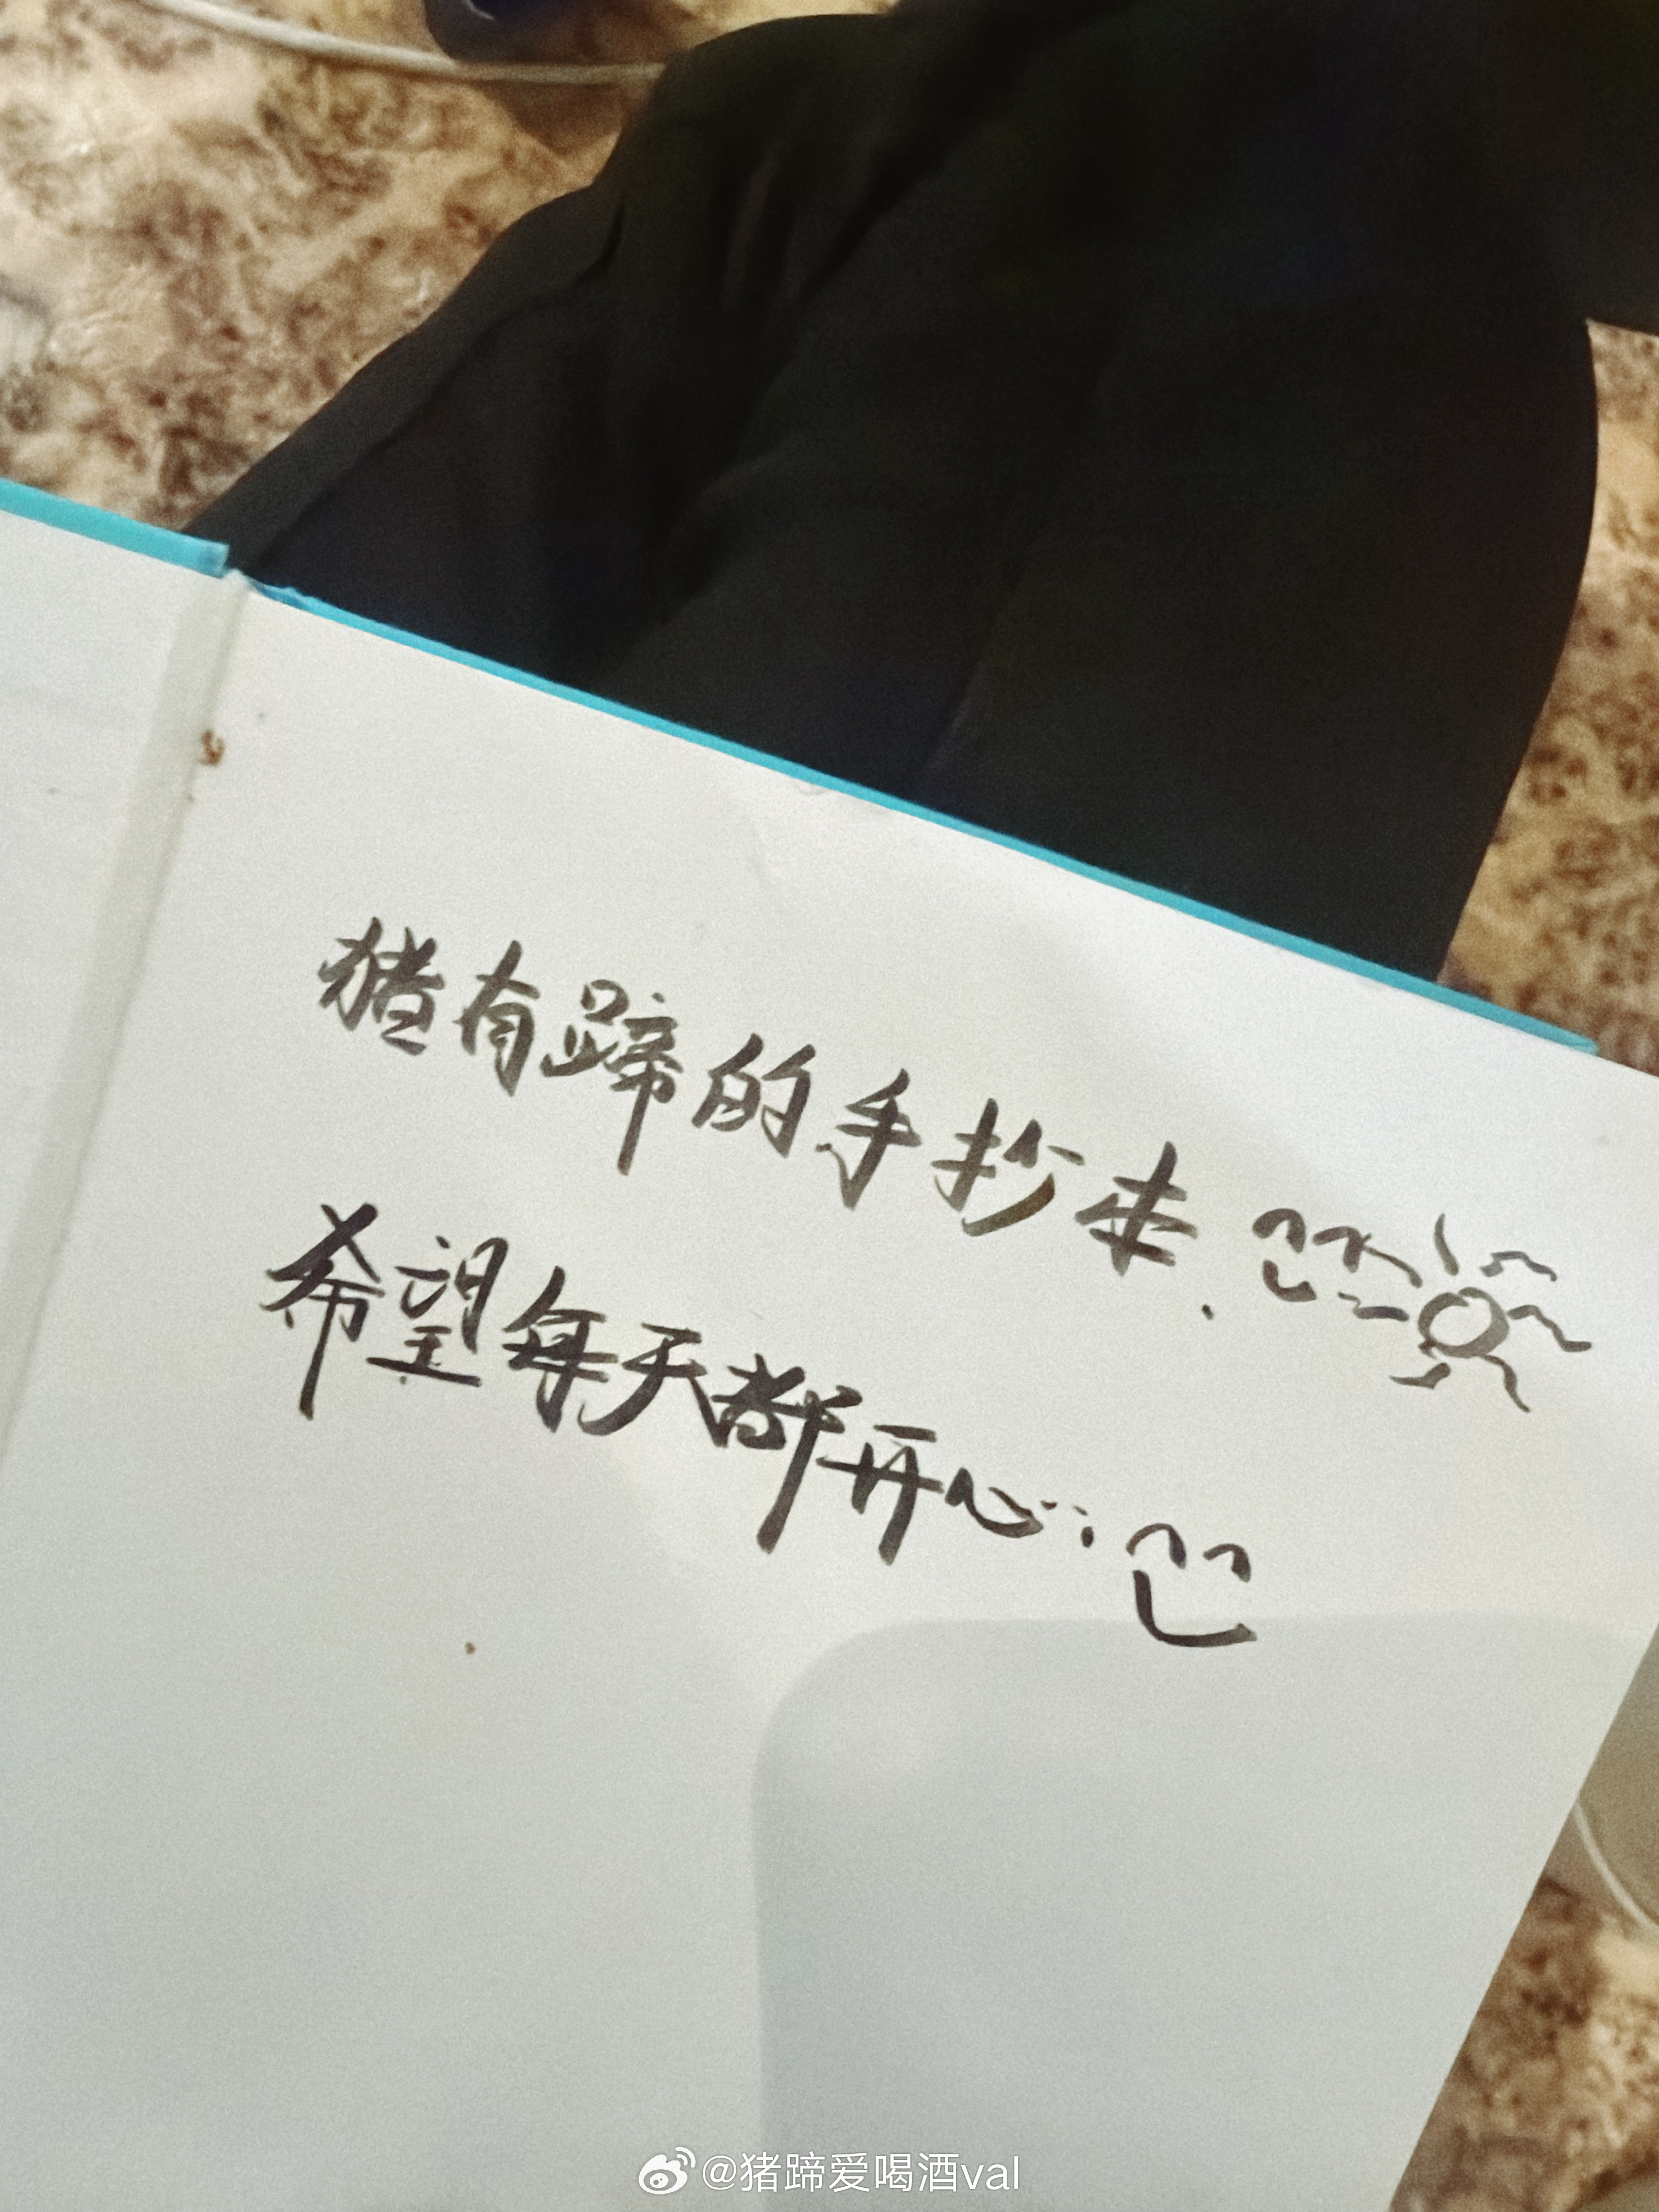 猪有蹄的手抄本.
希望每天都开心:
@猪蹄爱喝酒val